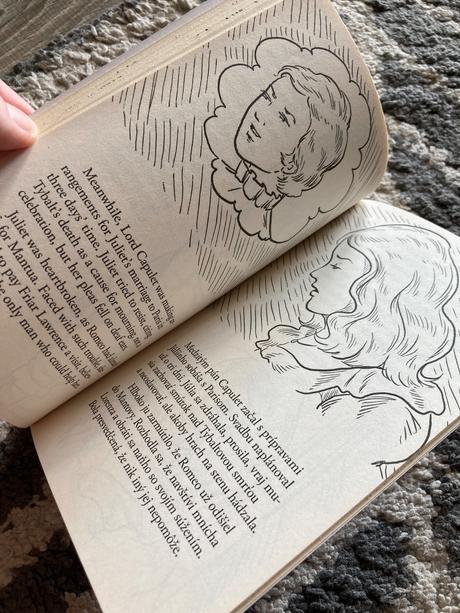 Meanwhile, Lord Capulet was making ar-
rangements for Juliet's marriage to Paris in
three days' time. Juliet tried to resist, citing
Tybalt's death as a cause for mourning, not
celebration, but her pleas fell on deaf ears.
Juliet was heartbroken, as Romeo had
for Mantua. Faced with such
to pay Friar Lawrence a visit,
only man who could
Medzitým pán Capulet začal s prípravami
Júliinho sobáša s Parisom. Svadbu naplánoval
už o tri dni. Júlia sa zdráhala, prosila, vraj mu-
sia zachovať smútok nad Tybaltovou smrťou
a neoslavovať, ale akoby hrach na stenu hádzala.
Hlboko ju zarmútilo, že Romeo už odišiel
do Mantovy. Rozhodla sa, že navštívi mnícha
Lorenza a obráti sa naňho so svojím súžením.
Bola presvedčená, že nik iný jej nepomôže.